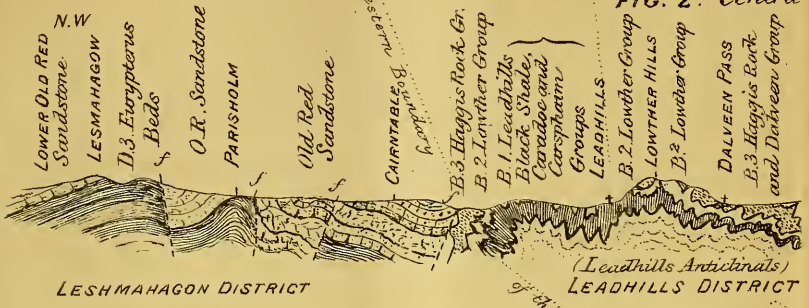 FIG. 2. Centra
N.W
LOWER OLD RED
Sandstone
LESMAHAGOW
D.3. Eurypterus
Beds
O.R. Sandstone
PARISHOLM
Old Red
Sandstone
estern Boundary
CAIRNTABLE
B.3 Haggis Rock Gr.
B.2 Lowther Group
B.1. Leadhills
Black Shale,
Caradoc and
Carspharn
Groups
LEADHILLS
B.2 Lowther Group
LOWTHER HILLS
B.2 Lowther Group
DALVEEN PASS
B.3 Haggis Rock
and Dalveen Group
f
f
f
(Leadhills Anticlinals)
LESHMAHAGON DISTRICT
LEADHILLS DISTRICT
of